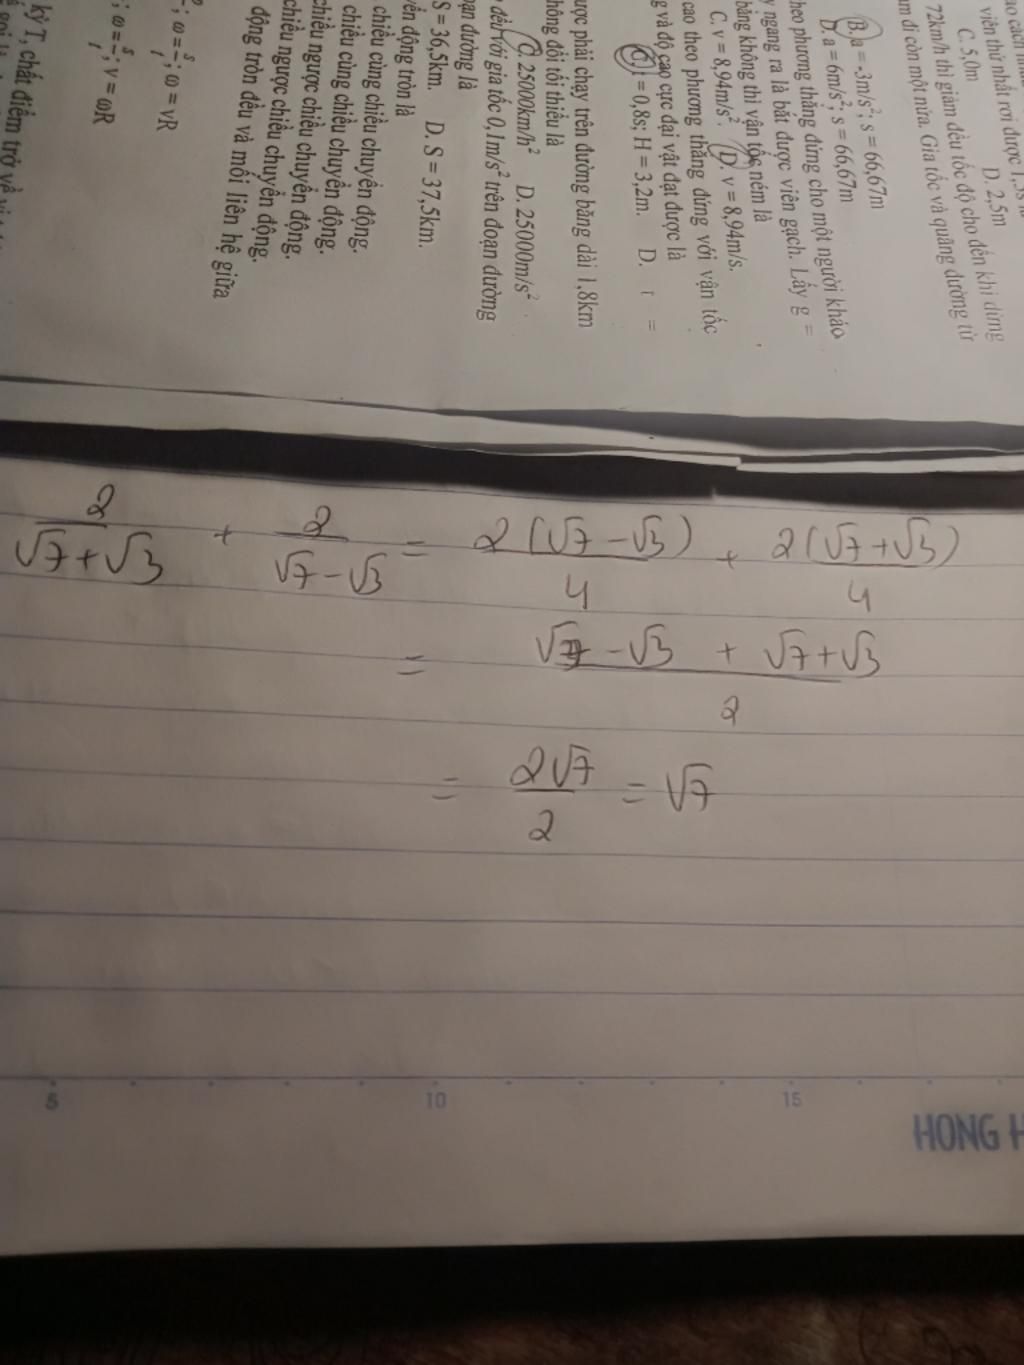 viên thứ nhất rơi được 1,5s
C. 5,0m D. 2,5m
72km/h thì giảm đều tốc độ cho đến khi dừng
đi còn một nửa. Gia tốc và quãng đường từ
B. a = -3m/s²; s = 66,67m
D. a = 6m/s²; s = 66,67m
theo phương thẳng đứng cho một người khác
ngang ra là bắt được viên gạch. Lấy g =
bằng không thì vận tốc ném là
C. v = 8,94m/s². D. v = 8,94m/s.
cao theo phương thẳng đứng với vận tốc
và độ cao cực đại vật đạt được là
C. t = 0,8s; H = 3,2m. D. t =
phải chạy trên đường băng dài 1,8km
không đổi tối thiểu là
C. 25000km/h² D. 25000m/s²
đều với gia tốc 0,1m/s² trên đoạn đường
đường là
S = 36,5km. D. S = 37,5km.
động tròn là
chiều cùng chiều chuyển động.
chiều ngược chiều chuyển động.
chiều cùng chiều chuyển động.
chiều ngược chiều chuyển động.
động tròn đều và mối liên hệ giữa
; ω = s/t; ω = vR
; ω = s/t; v = ωR
kỳ T, chất điểm trở về
2/(√7+√3) + 2/(√7-√3) = 2(√7-√3)/4 + 2(√7+√3)/4
= (√7-√3 + √7+√3)/2
= 2√7/2 = √7
5 10 15
HONG H